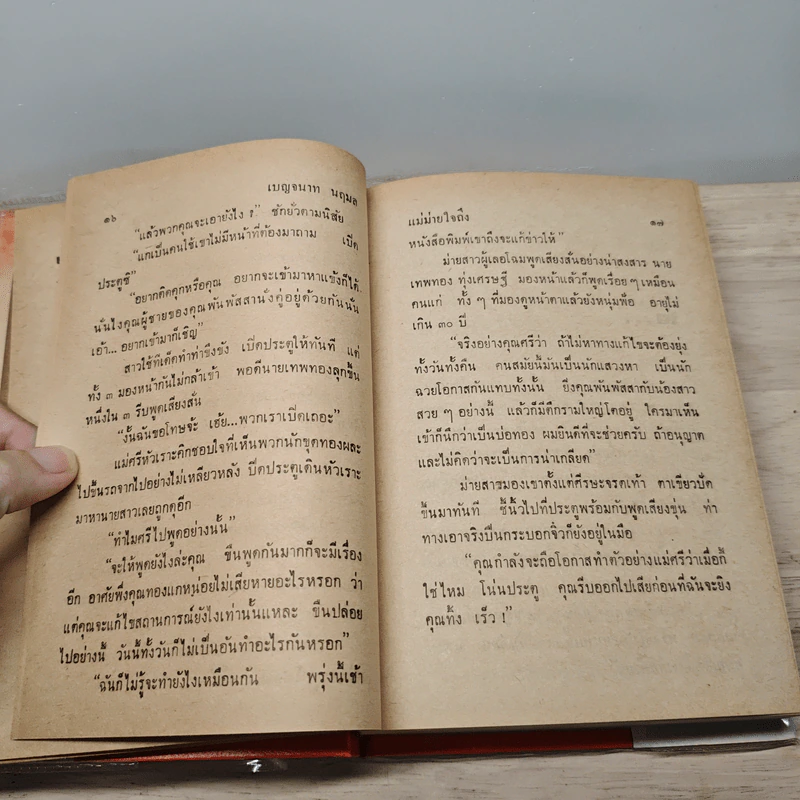 เบญจนาท นฤมล
๑๖
"แล้วพวกคุณจะเอายังไง ?" ซักยั่วตามนิสัย
"แกเป็นคนใช้เขาไม่มีหน้าที่ต้องมาถาม เปิด
ประตูซิ"
"อยากติดคุกหรือคุณ อยากจะเข้ามาหาแข้งก็ได้.
นั่นไงคุณผู้ชายของคุณพันพัสสานั่งคู่อยู่ด้วยกันนั่น
เอ้า... อยากเข้ามาก็เชิญ"
สาวใช้ทีเด็ดทำท่าขึงขัง เปิดประตูให้ทันที แต่
ทั้ง ๓ มองหน้ากันไม่กล้าเข้า พอดีนายเทพทองลุกขึ้น
หนึ่งใน ๓ รีบพูดเสียงสั่น
"งั้นฉันขอโทษจะ เฮ้ย...พวกเราเปิดเถอะ"
แม่ศรีหัวเราะคิกชอบใจที่เห็นพวกนักขุดทองผละ
ไปขึ้นรถจากไปอย่างไม่เหลียวหลัง ปิดประตูเดินหัวเราะ
มาหานายสาวเลยถูกดุอีก
"ทำไมศรีไปพูดอย่างนั้น"
"จะให้พูดยังไงล่ะคุณ ขืนพูดกันมากก็จะมีเรื่อง
อีก อาศัยพึ่งคุณทองแกหน่อยไม่เสียหายอะไรหรอก ว่า
แต่คุณจะแก้ไขสถานการณ์ยังไงเท่านั้นแหละ ขืนปล่อย
ไปอย่างนี้ วันนี้ทั้งวันก็ไม่เป็นอันทำอะไรกันหรอก"
"ฉันก็ไม่รู้จะทำยังไงเหมือนกัน พรุ่งนี้เช้า
แม่ม่ายใจถึง
๑๗
หนังสือพิมพ์เขาถึงจะแก้ข่าวให้"
ม่ายสาวผู้เลอโฉมพูดเสียงสั่นอย่างน่าสงสาร นาย
เทพทอง ทุ่งเศรษฐี มองหน้าแล้วก็พูดเรื่อย ๆ เหมือน
คนแก่ ทั้ง ๆ ที่มองดูหน้าตาแล้วยังหนุ่มฟ้อ อายุไม่
เกิน ๓๐ ปี
"จริงอย่างคุณศรีว่า ถ้าไม่หาทางแก้ไขจะต้องยุ่ง
ทั้งวันทั้งคืน คนสมัยนี้มันเป็นนักแสวงหา เป็นนัก
ฉวยโอกาสกันแทบทั้งนั้น ยิ่งคุณพันพัสสากับน้องสาว
สวย ๆ อย่างนี้ แล้วก็มีตึกรามใหญ่โตอยู่ ใครมาเห็น
เข้าก็นึกว่าเป็นบ่อทอง ผมยินดีที่จะช่วยครับ ถ้าอนุญาต
และไม่คิดว่าจะเป็นการน่าเกลียด"
ม่ายสาวมองเขาตั้งแต่ศีรษะจรดเท้า ตาเขียวปั้ด
ขึ้นมาทันที ชี้นิ้วไปที่ประตูพร้อมกับพูดเสียงขุ่น ท่า
ทางเอาจริงปืนกระบอกจิ๋วก็ยังอยู่ในมือ
"คุณกำลังจะถือโอกาสทำตัวอย่างแม่ศรีว่าเมื่อกี้
ใช่ไหม โน่นประตู คุณรีบออกไปเสียก่อนที่ฉันจะยิง
คุณทิ้ง เร็ว !"